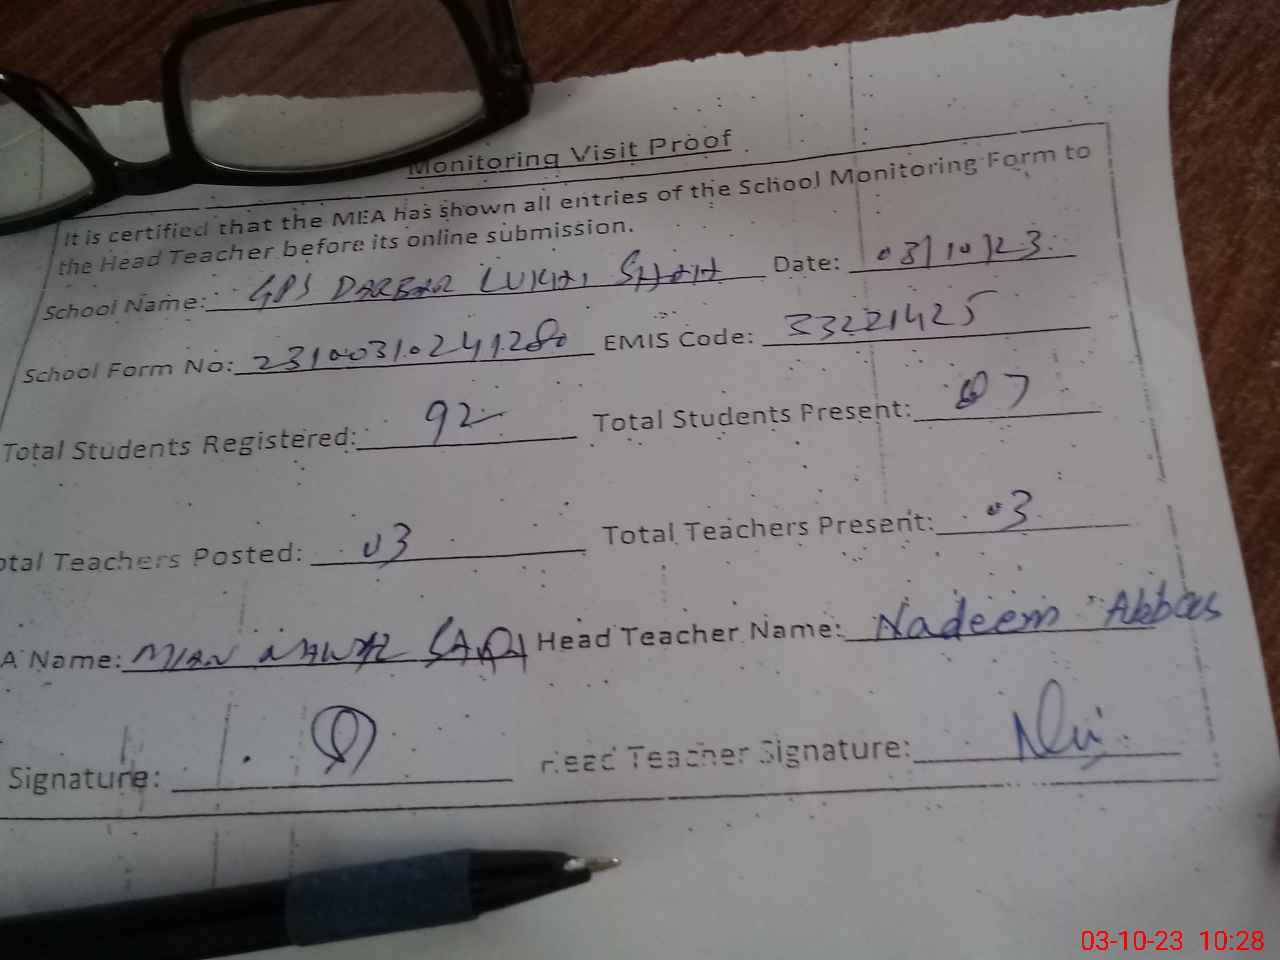 Monitoring Visit Proof
It is certified that the MEA has shown all entries of the School Monitoring Form to
the Head Teacher before its online submission.
School Name: GPS DARBAR LUKHI SHAH Date: 03/10/23
School Form No: EMIS Code: 33221425
Total Students Registered: 92 Total Students Present:
otal Teachers Posted: 03 Total Teachers Present: 03
A Name: MIAN Head Teacher Name: Nadeem Abbas
Signature: Head Teacher Signature:
03-10-23 10:28